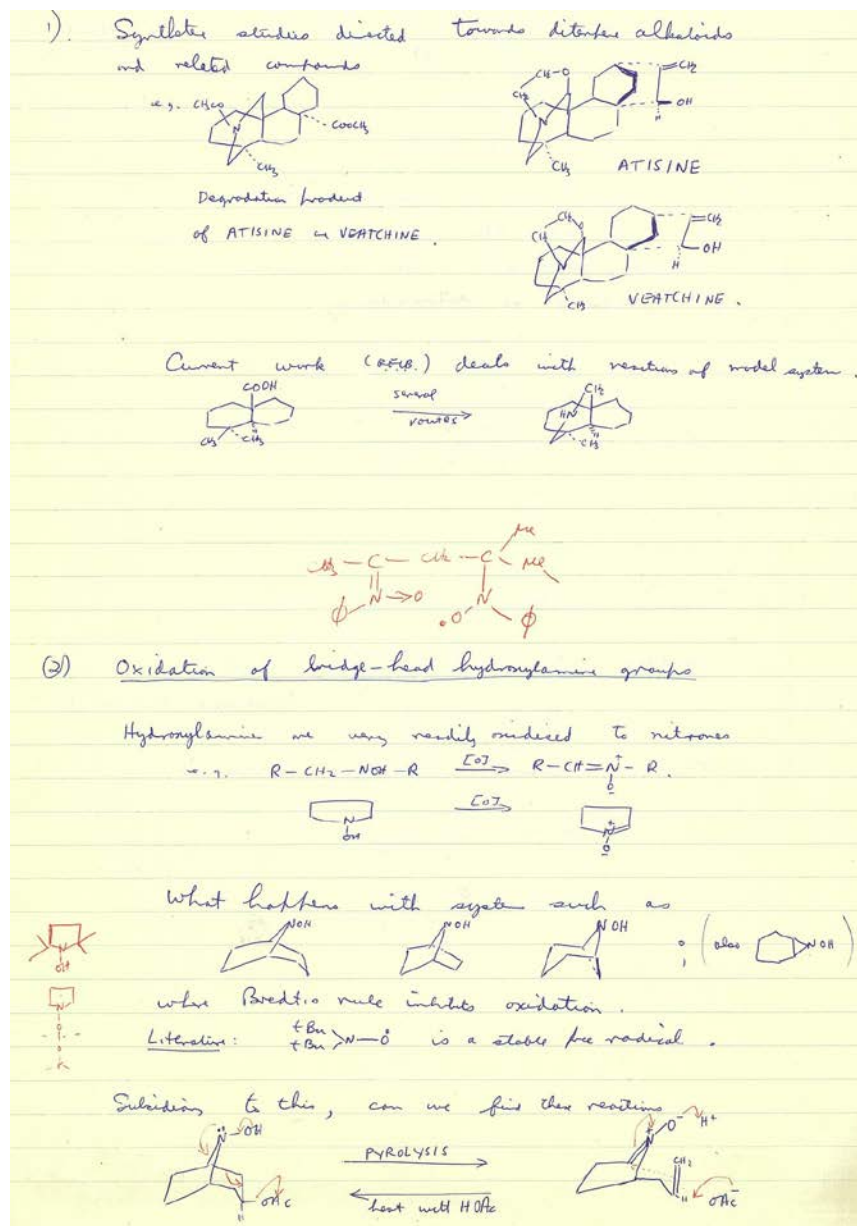 1). Synthetic studies directed towards diterpene alkaloids
and related compounds
e.g. CH₃CO N COOCH₃ CH₃
CH₂ O CH₂ N CH₃ =CH₂ OH H
ATISINE
Degradation product
of ATISINE or VEATCHINE.
CH₂ O CH₂ N CH₃ =CH₂ OH H
VEATCHINE.
Current work (R.F.C.B.) deals with reactions of model system.
COOH CH₃ CH₃ H
several
routes
CH₂ HN H CH₃
CH₃ — C — CH₂ — C Me Me
ϕ N→O •O N ϕ
(2) Oxidation of bridge-head hydroxylamine groups
Hydroxylamine are very readily oxidised to nitrones
e.g. R–CH₂–NOH–R [O] R–CH=N⁺–R.
O⁻
N OH [O] N⁺ O⁻
What happens with system such as
NOH NOH NOH ; (also NOH)
N OH
where Bredt's rule inhibits oxidation.
N O O
Literature: tBu tBu N–O is a stable free radical.
Subsidiary to this, can we find these reactions
N–OH OAc H
PYROLYSIS
heat with HOAc
N⁺ O⁻ H⁺ CH₂ H OAc⁻